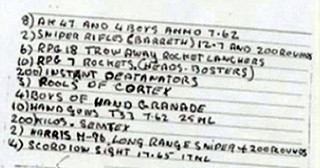 8) AK 47 AND 4 BOYS AMMO 7.62
2) SNIPER RIFLES (BARRETH) 12.7 AND 200 ROUNDS
6) RPG 18 TROW AWAY ROCKET LANCHERS
10) RPG 7 ROCKETS. (HEADS. BOSTERS)
200) INSTANT DEATANATORS
3) ROOLS OF CORTEX
4) BOYS OF HAND GRANADE
10) HAND GUNS T33 7.62 25 ML
200 KILOS. SEMTEX
2) HARRIS M-96, LONG RANGE SNIPER + 200 ROUNDS
4) SCORDION SIGHT 17.65 17ML